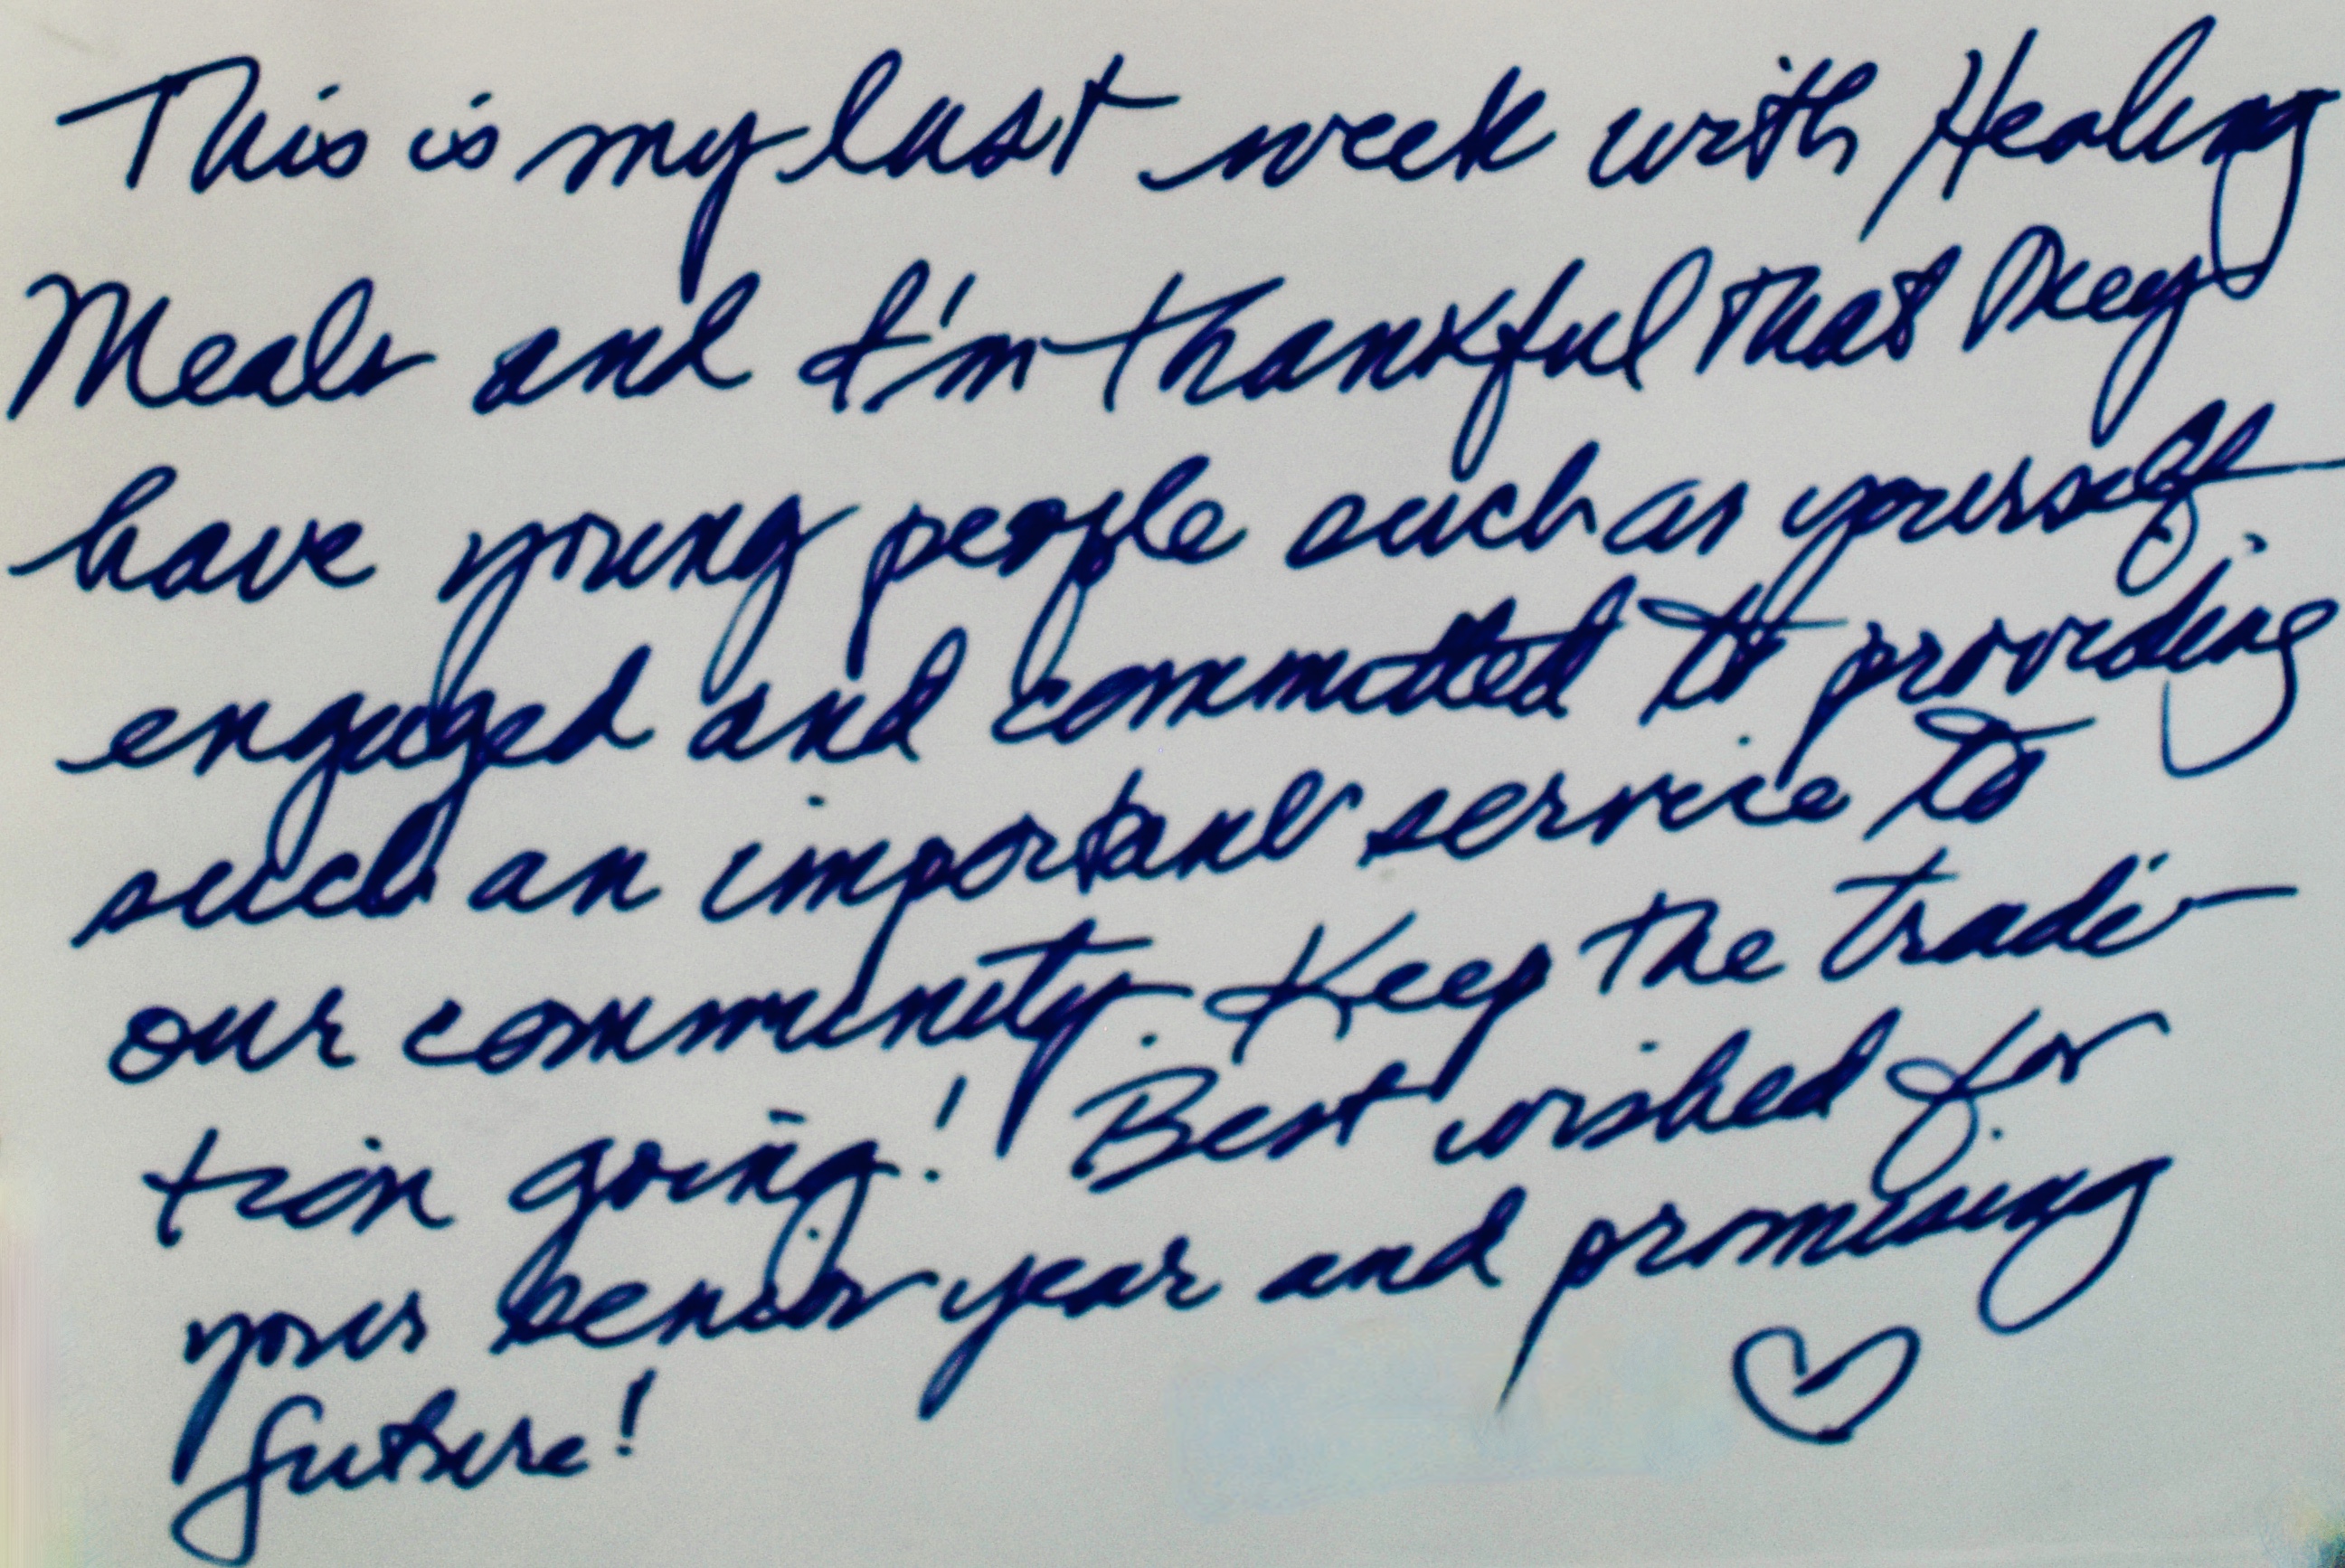 This is my last week with Healing
Meals and I'm thankful that they
have young people such as yourself
engaged and committed to providing
such an important service to
our community. Keep the tradi-
tion going! Best wished for
your senior year and promising
future!